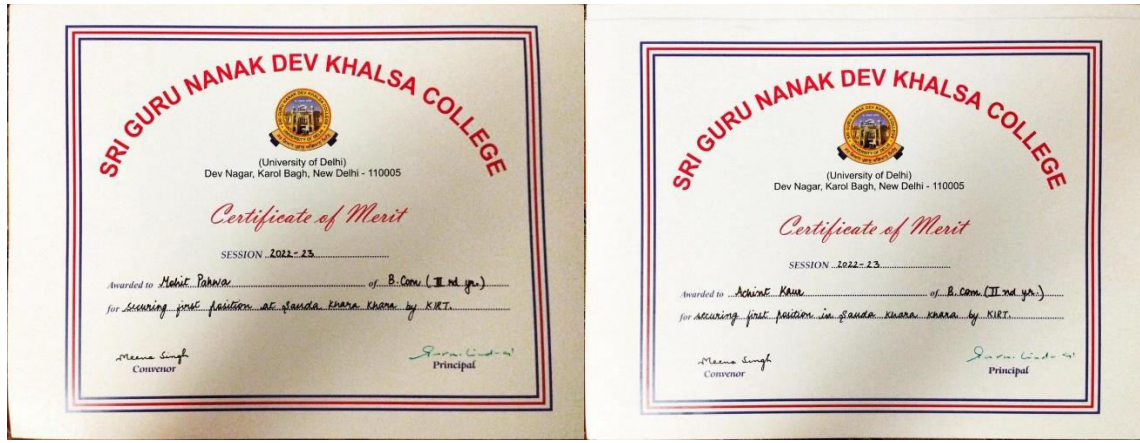 SRI GURU NANAK DEV KHALSA COLLEGE
SRI GURU NANAK DEV KHALSA COLLEGE
UNIVERSITY OF DELHI
(University of Delhi)
Dev Nagar, Karol Bagh, New Delhi - 110005
Certificate of Merit
SESSION 2022-23
Awarded to Mohit of B.Com (II nd yr.)
for securing first position at Sauda Khara Khara by KIRT.
Meena Singh
Convenor
Principal
SRI GURU NANAK DEV KHALSA COLLEGE
SRI GURU NANAK DEV KHALSA COLLEGE
UNIVERSITY OF DELHI
(University of Delhi)
Dev Nagar, Karol Bagh, New Delhi - 110005
Certificate of Merit
SESSION 2022-23
Awarded to Achint Kaur of B.Com (II nd yr.)
for securing first position in Sauda Khara Khara by KIRT.
Meena Singh
Convenor
Principal